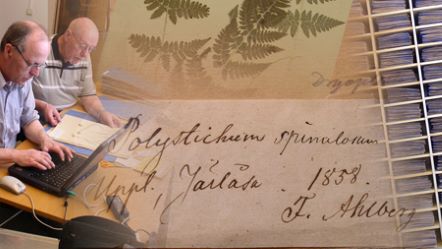 Polystichum spinulosum
Uppl., Järlåsa. 1858.
F. Ahlberg